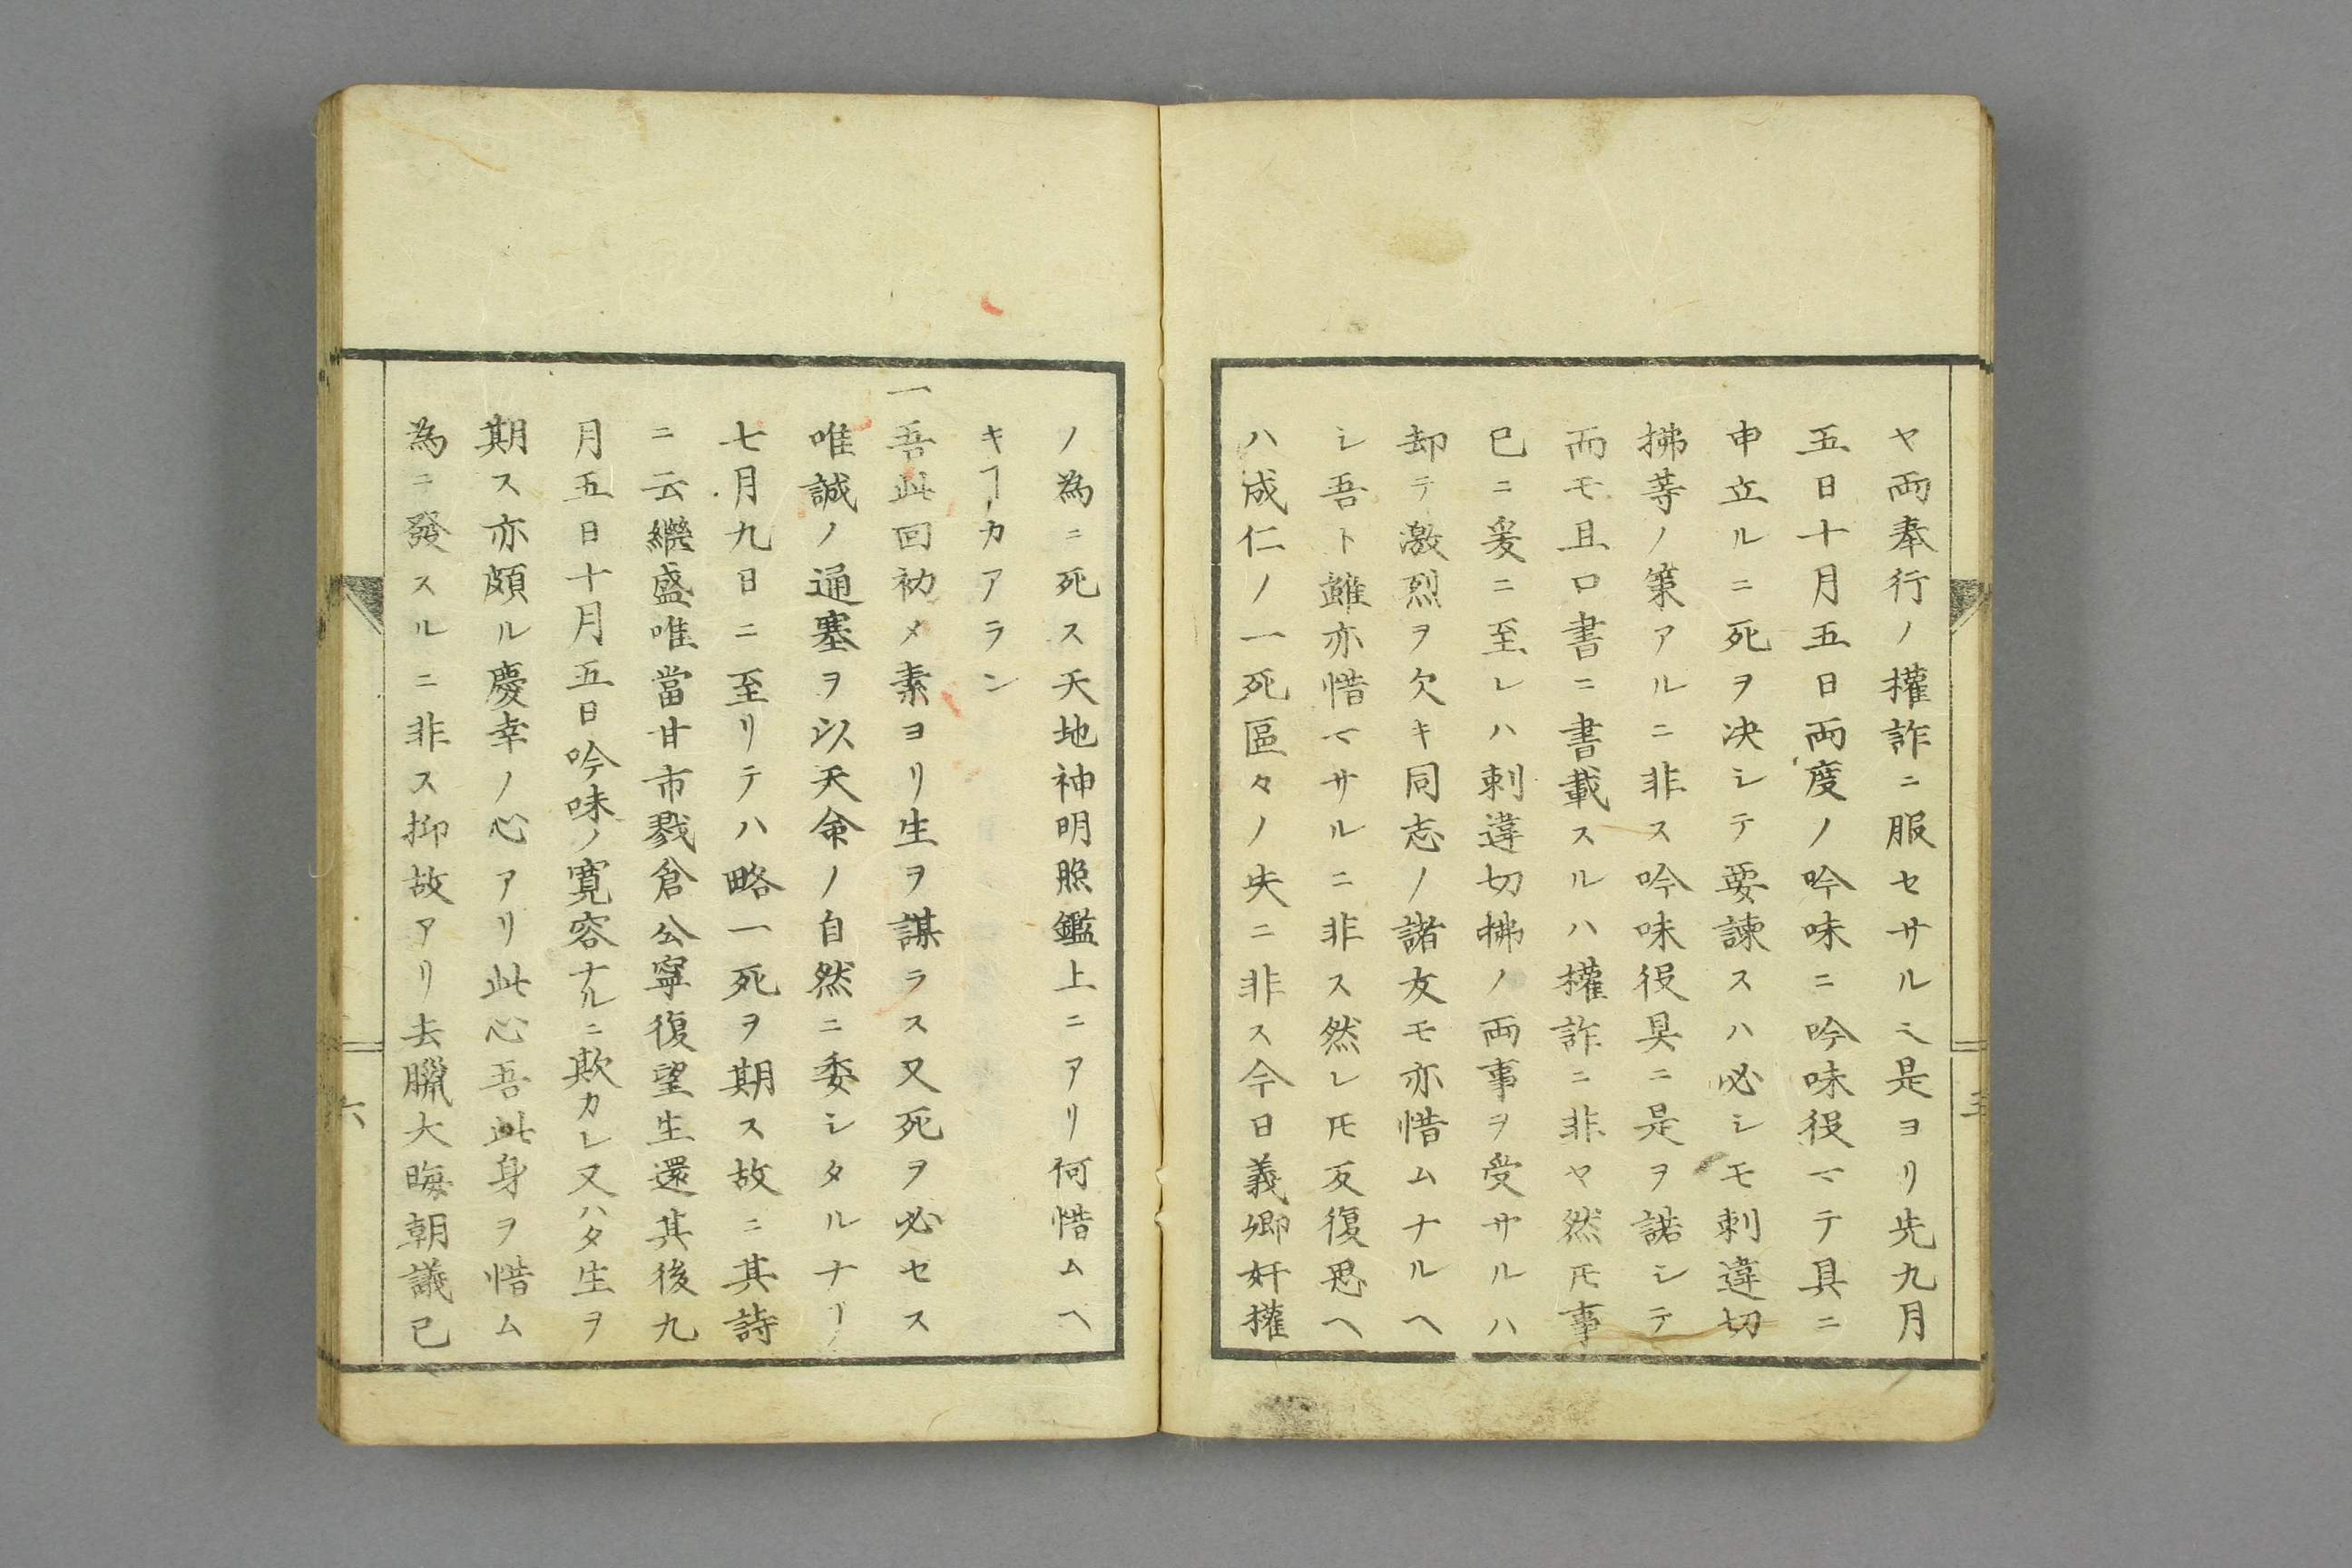 ヤ両奉行ノ權詐ニ服セサルミ是ヨリ先九月
五日十月五日両度ノ吟味ニ吟味役マテ具ニ
申立ルニ死ヲ决シテ要諫スハ必シモ刺違切
拂等ノ策アルニ非ス吟味役具ニ是ヲ諾シテ
而モ且口書ニ書載スルハ權詐ニ非ヤ然𪜈事
已ニ爰ニ至レハ刺違切拂ノ両事ヲ受サルハ
却テ激烈ヲ欠キ同志ノ諸友モ亦惜ムナルヘ
シ吾ト雖亦惜マサルニ非ス然レ𪜈反復思ヘ
ハ成仁ノ一死區々ノ失ニ非ス今日義卿奸權
ノ為ニ死ス天地神明照鑑上ニアリ何惜ムヘ
キヿカアラン
一吾此回初メ素ヨリ生ヲ謀ラス又死ヲ必セス
唯誠ノ通塞ヲ以天命ノ自然ニ委シタルナリ
七月九日ニ至リテハ略一死ヲ期ス故ニ其詩
ニ云繼盛唯當甘市戮倉公寧復望生還其後九
月五日十月五日吟味ノ寛容ナルニ欺カレ又ハタ生ヲ
期ス亦頗ル慶幸ノ心アリ此心吾此身ヲ惜ム
為ニ發スルニ非ス抑故アリ去臘大晦朝議已
六